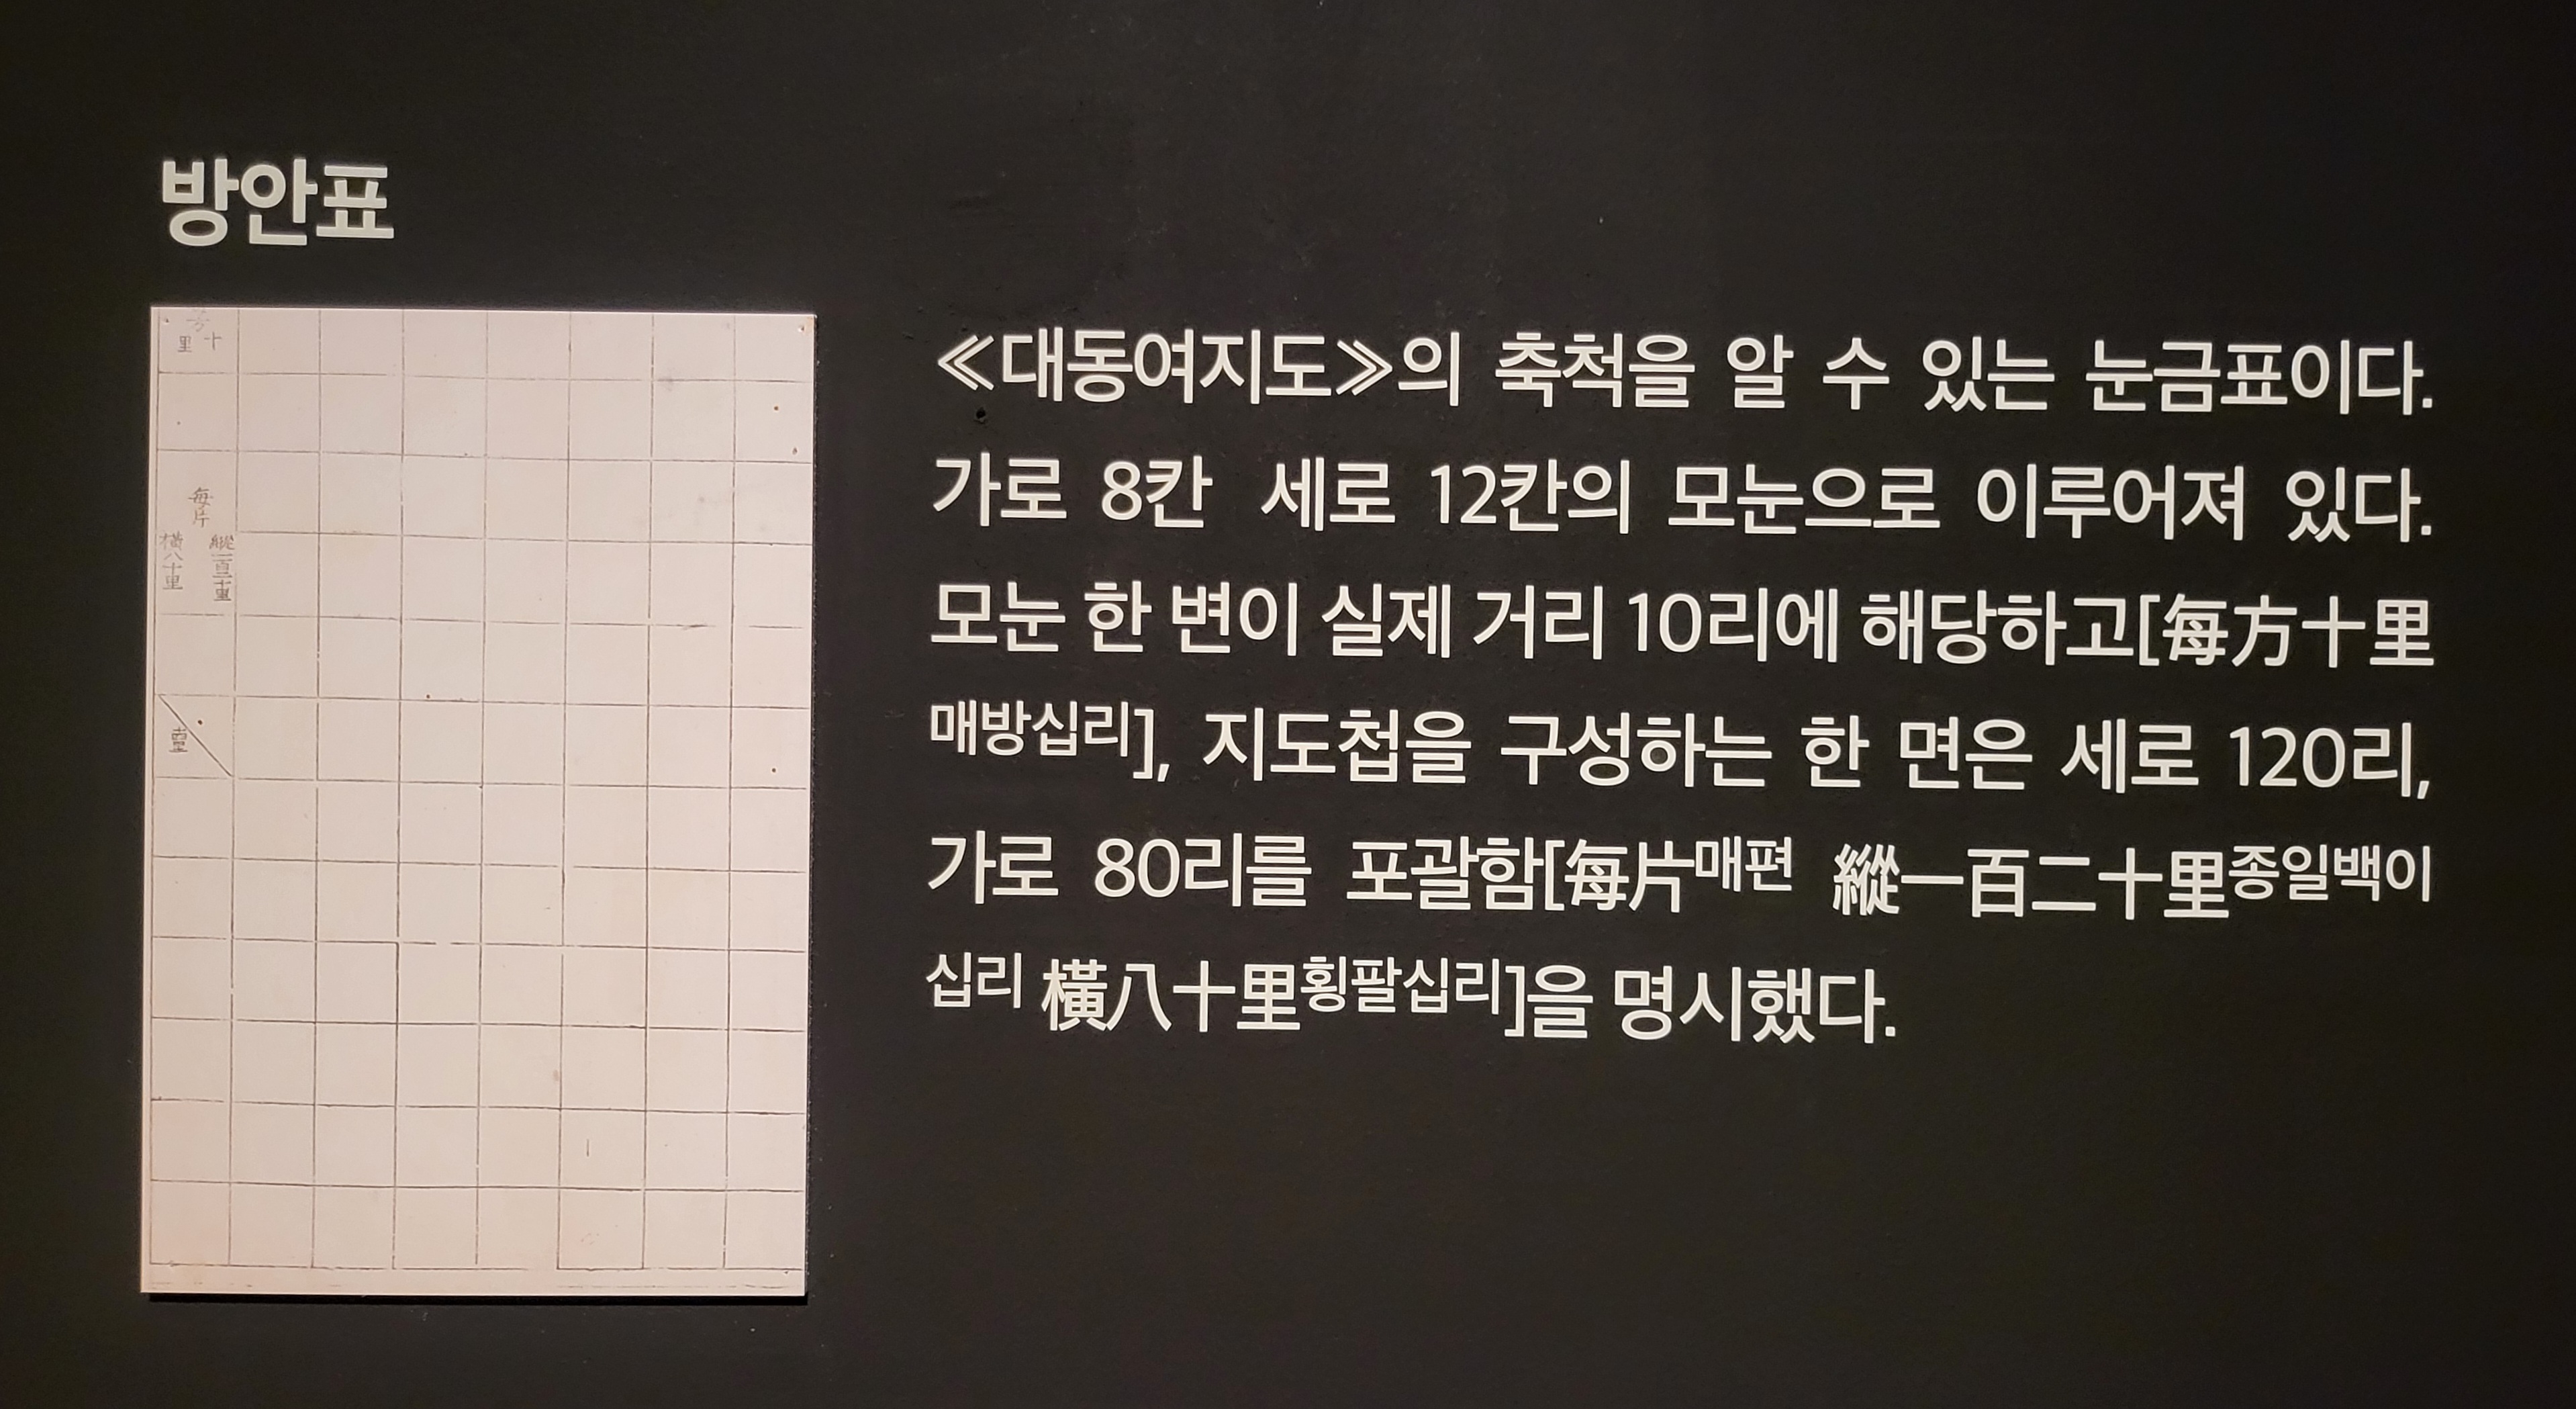 방안표
方
十
里
每片
縱一百二十里
橫八十里
≪대동여지도≫의 축척을 알 수 있는 눈금표이다.
가로 8칸 세로 12칸의 모눈으로 이루어져 있다.
모눈 한 변이 실제 거리 10리에 해당하고[每方十里
매방십리], 지도첩을 구성하는 한 면은 세로 120리,
가로 80리를 포괄함[每片매편 縱一百二十里종일백이
십리 橫八十里횡팔십리]을 명시했다.